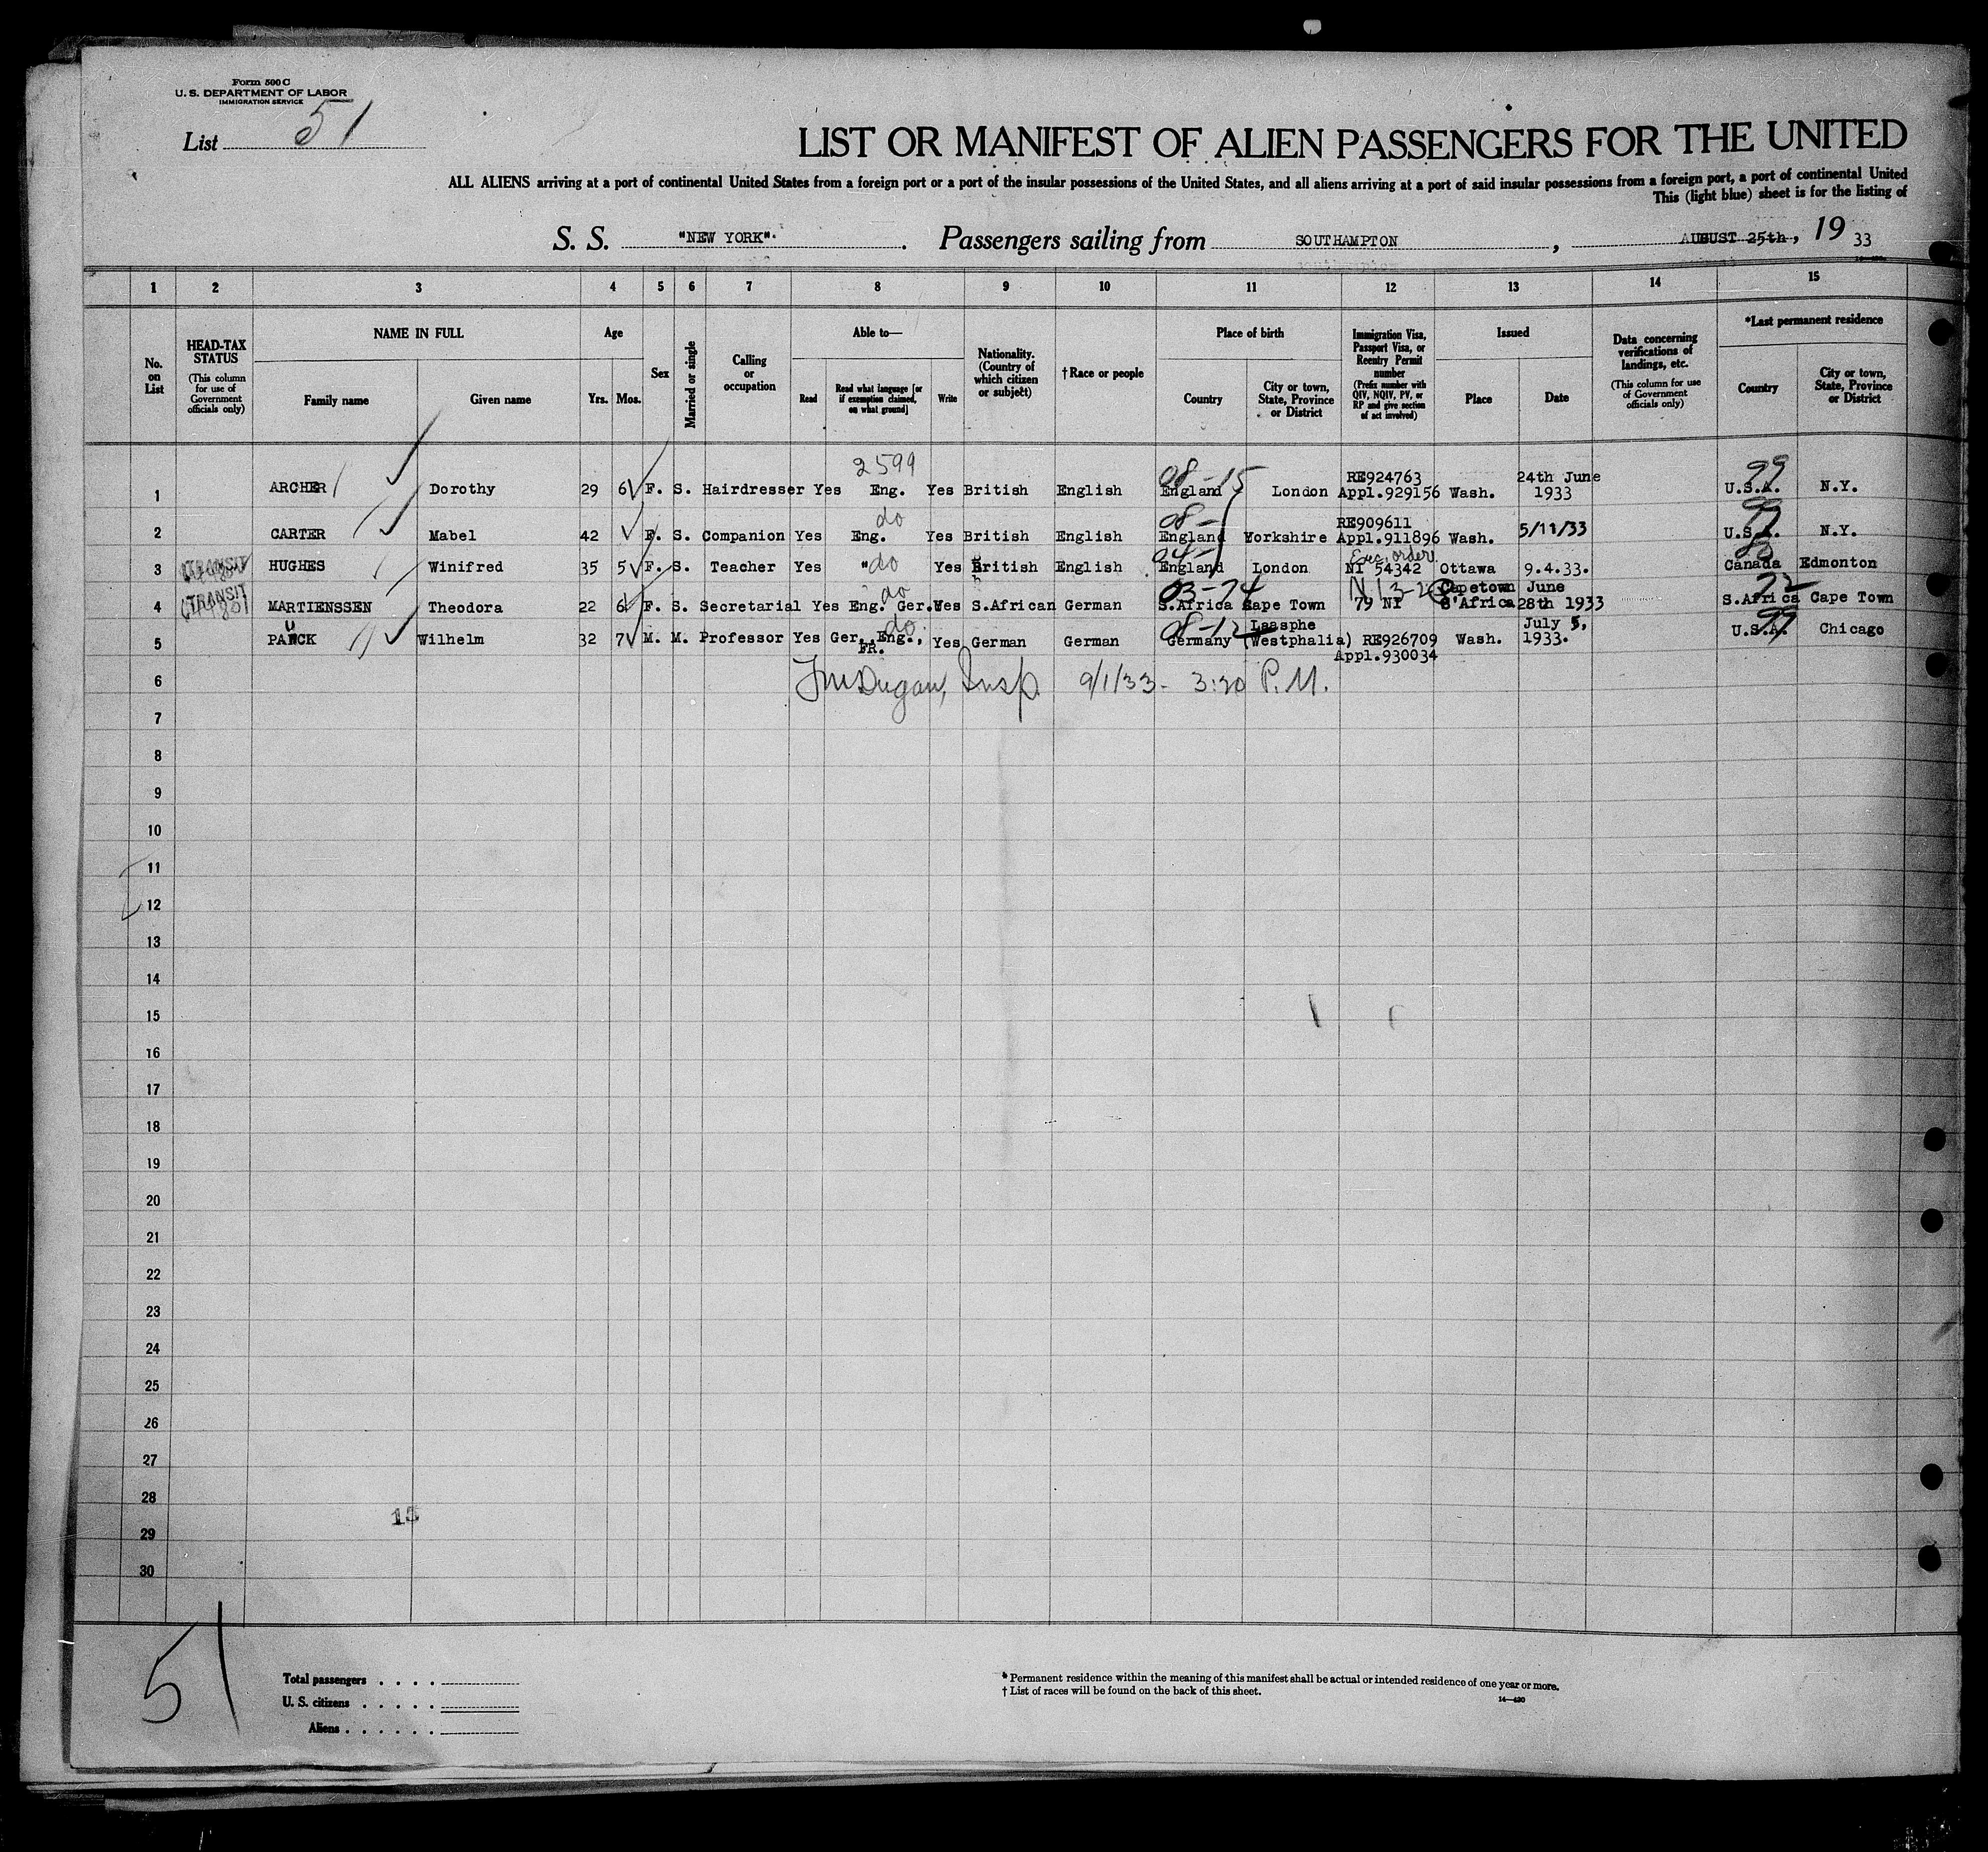 Form 500 C
U. S. DEPARTMENT OF LABOR
IMMIGRATION SERVICE
List 51
LIST OR MANIFEST OF ALIEN PASSENGERS FOR THE UNITED
ALL ALIENS arriving at a port of continental United States from a foreign port or a port of the insular possessions of the United States, and all aliens arriving at a port of said insular possessions from a foreign port, a port of continental United
This (light blue) sheet is for the listing of
S. S. "NEW YORK". Passengers sailing from SOUTHAMPTON, AUGUST 25th, 19 33
1 2 3 4 5 6 7 8 9 10 11 12 13 14 15
No. on List
HEAD-TAX STATUS (This column for use of Government officials only)
NAME IN FULL
Family name Given name
Age
Yrs. Mos.
Sex
Married or single
Calling or occupation
Able to—
Read Read what language [or if exemption claimed, on what ground] Write
Nationality. (Country of which citizen or subject)
†Race or people
Place of birth
Country City or town, State, Province or District
Immigration Visa, Passport Visa, or Reentry Permit number (Prefix number with QIV, NQIV, PV, or RP and give section of act involved)
Issued
Place Date
Data concerning verifications of landings, etc. (This column for use of Government officials only)
*Last permanent residence
Country City or town, State, Province or District
2599 08-15 RE924763 24th June 99
1 ARCHER Dorothy 29 6 F. S. Hairdresser Yes Eng. Yes British English England London Appl.929156 Wash. 1933 U.S.A. N.Y.
do 08- RE909611 99
2 CARTER Mabel 42 F. S. Companion Yes Eng. Yes British English England Yorkshire Appl.911896 Wash. 5/11/33 U.S.A. N.Y.
TRANSIT 04- Exec. order
3 HUGHES Winifred 35 5 F. S. Teacher Yes " do Yes British English England London NI 54342 Ottawa 9.4.33. Canada Edmonton
TRANSIT do 03-74 Capetown June 72
4 MARTIENSSEN Theodora 22 6 F. S. Secretarial Yes Eng. Ger. Yes S.African German S.Africa Cape Town 79 NI S'Africa 28th 1933 S.Africa Cape Town
u do. 08-12 Laasphe July 5, 99
5 PANCK Wilhelm 32 7 M. M. Professor Yes Ger., Eng., FR. Yes German German Germany (Westphalia) RE926709 Wash. 1933. U.S.A. Chicago
Appl.930034
6 Dugan, Insp 9/1/33- 3:20 P.M.
7
8
9
10
11
12
13
14
15
16
17
18
19
20
21
22
23
24
25
26
27
28
29
30
51
Total passengers . . . .
U. S. citizens . . . . .
Aliens . . . . . .
* Permanent residence within the meaning of this manifest shall be actual or intended residence of one year or more.
† List of races will be found on the back of this sheet.
14—430